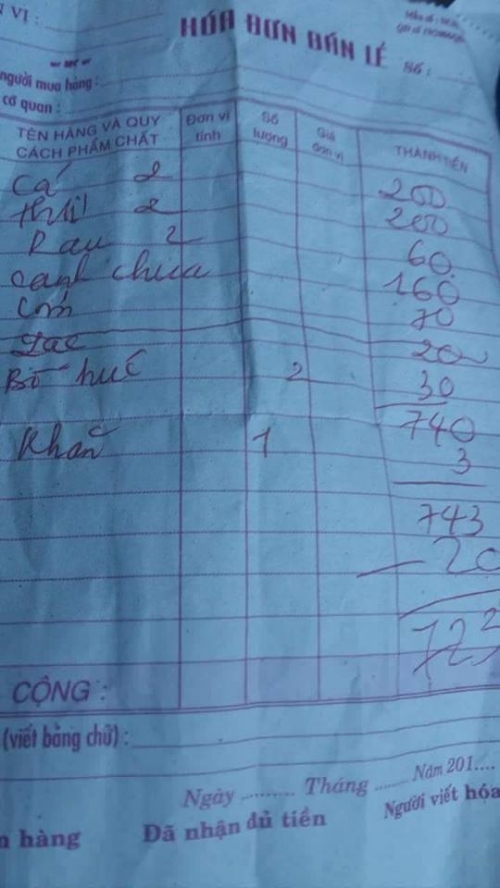 VỊ :
HÓA ĐƠN BÁN LẺ
Số :
người mua hàng :
cơ quan :
TÊN HÀNG VÀ QUY CÁCH PHẨM CHẤT Đơn vị tính Số lượng Giá đơn vị THÀNH TIỀN
Cá 2 200
thịt 2 200
Rau 2 60
canh chua 160
Cơm 70
Lạc 20
Bò húc 2 30
740
Khăn 1 3
743
- 20
723
CỘNG :
(viết bằng chữ) :
Ngày .......... Tháng ...... Năm 201....
n hàng Đã nhận đủ tiền Người viết hóa